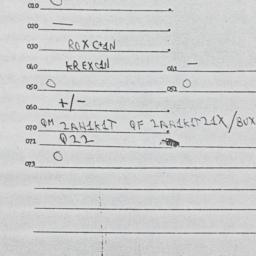 010 O
020 —
030 ROXC+1N
040 KREXC1N 041 —
050 O 052 O
060 +/-
070 QM 2AH1K1T QF 2AH1K1T21X/BUX
071 Q22
073 O